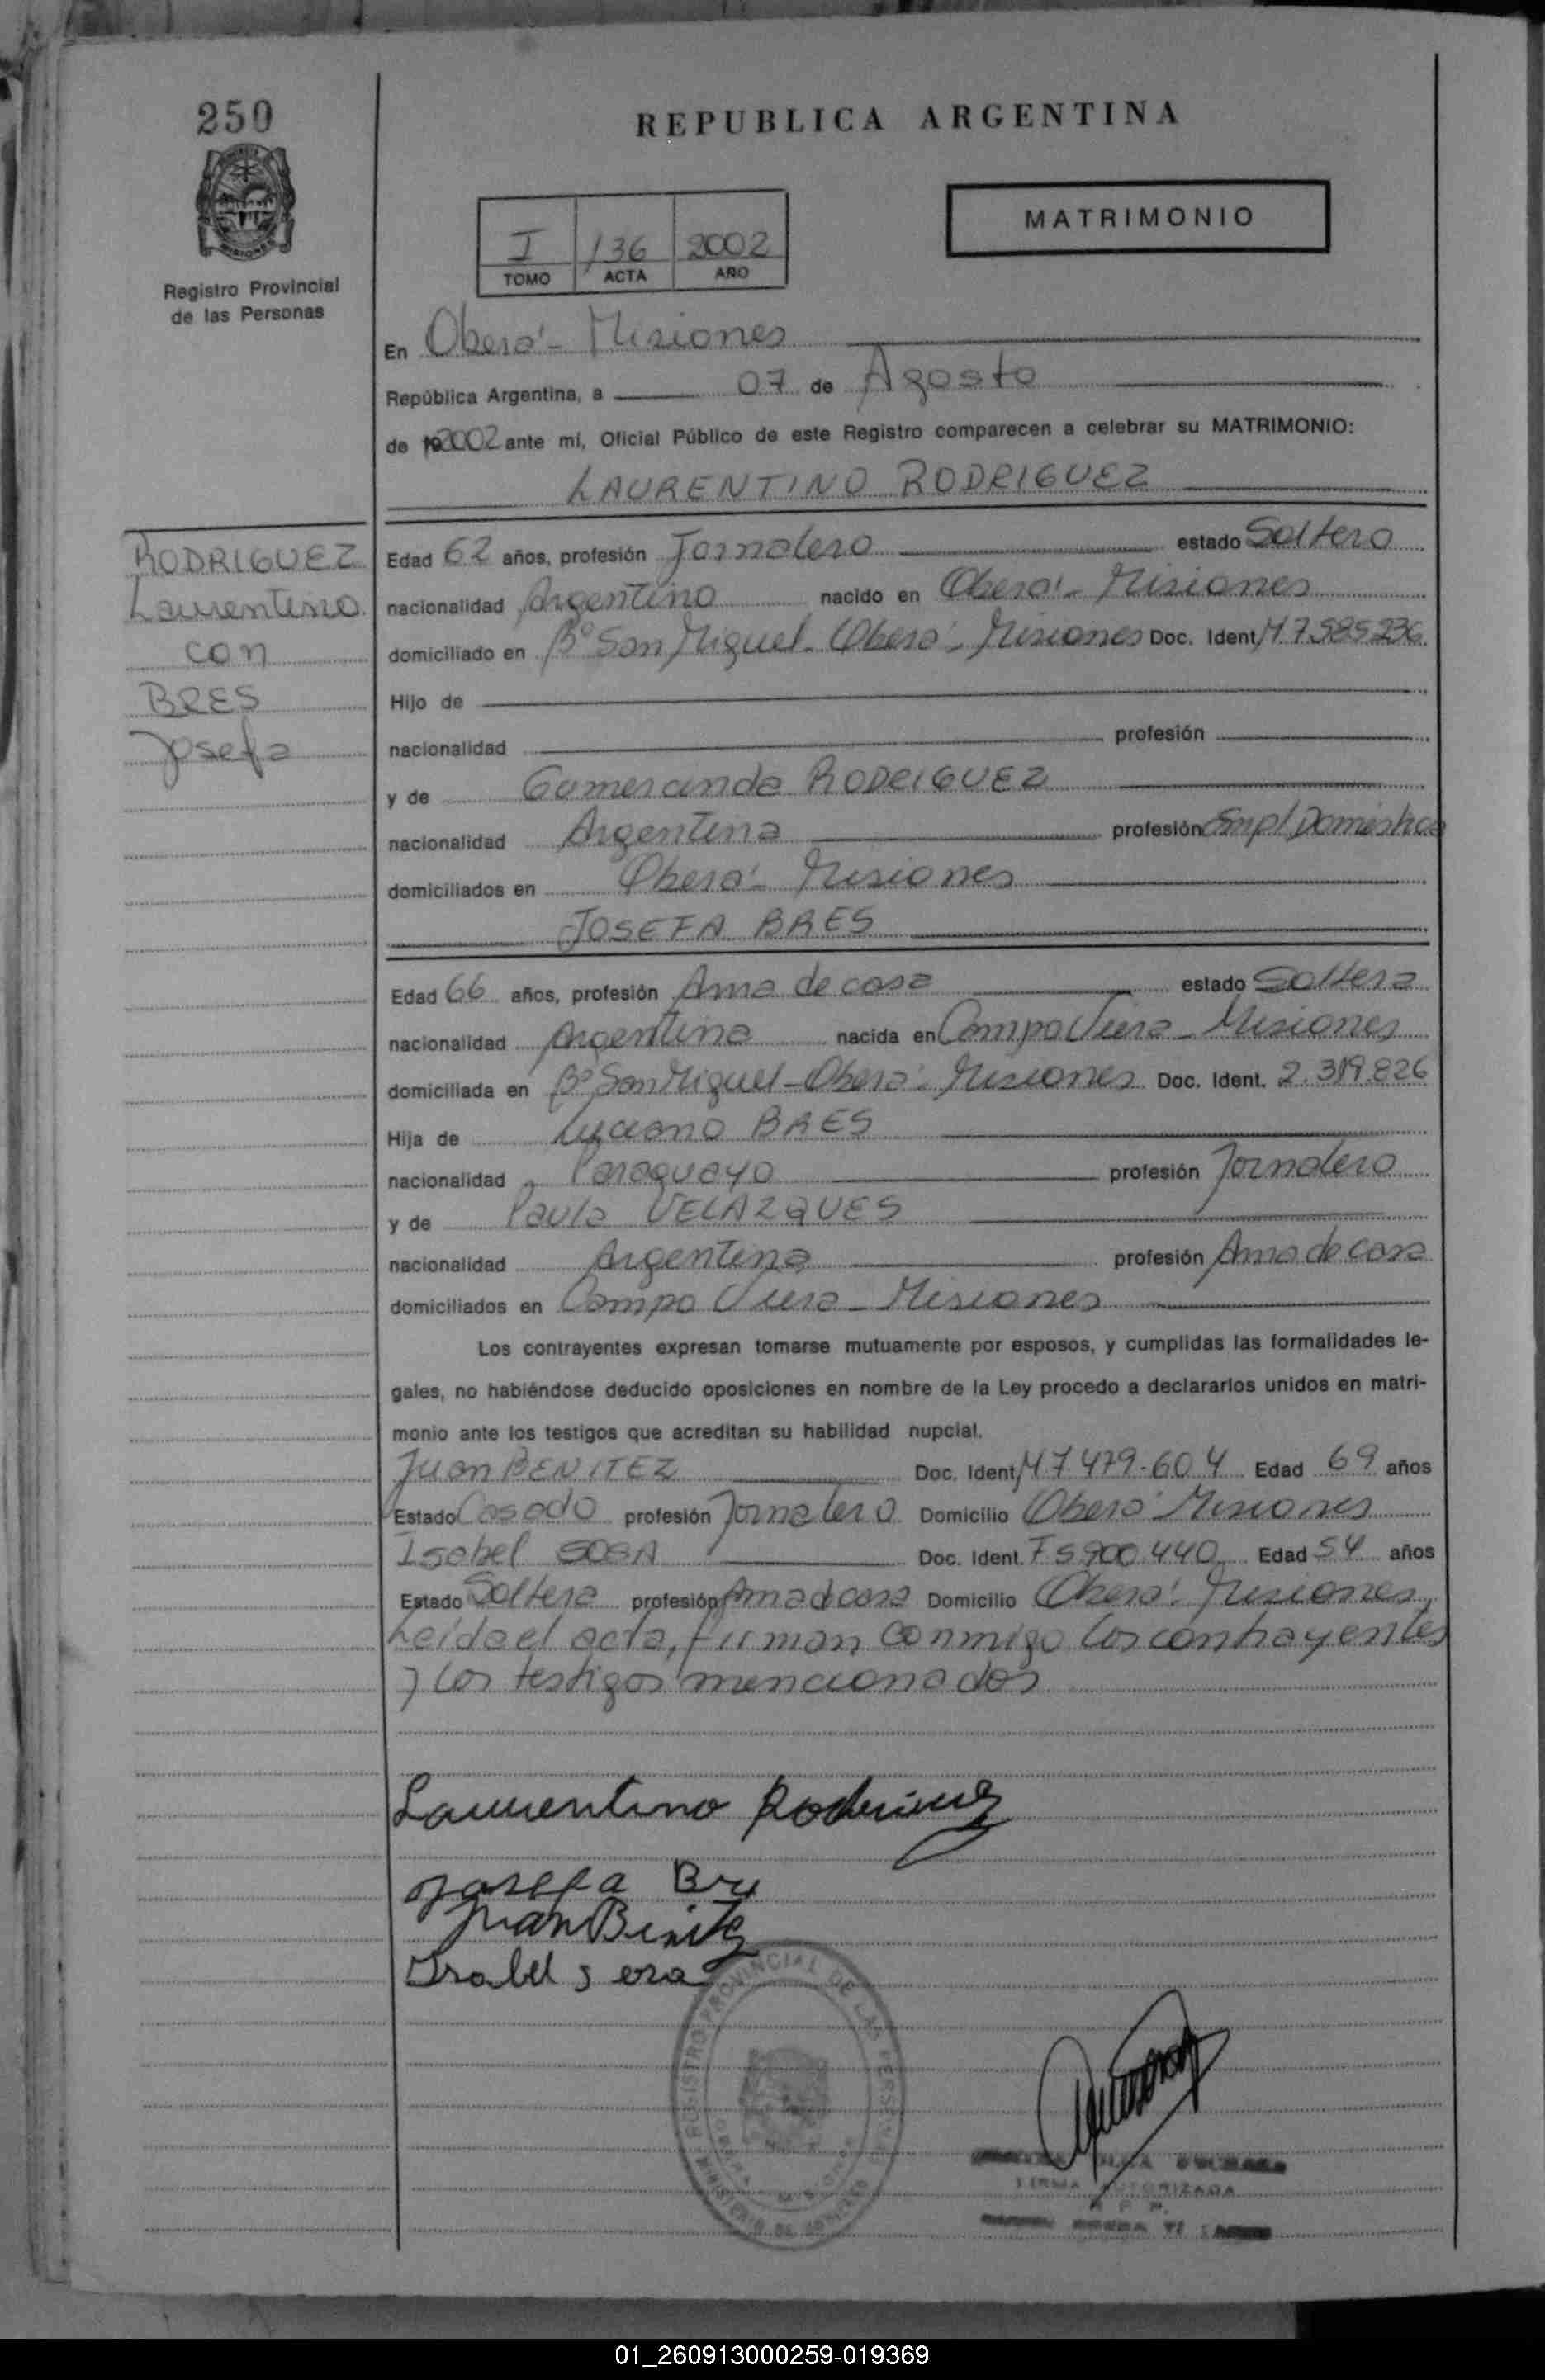 250
REPUBLICA ARGENTINA
MATRIMONIO
I 136 2002
TOMO ACTA AÑO
Registro Provincial
de las Personas
En Oberá - Misiones
República Argentina, a 07 de Agosto
de 192002 ante mí, Oficial Público de este Registro comparecen a celebrar su MATRIMONIO:
LAURENTINO RODRIGUEZ
RODRIGUEZ
Laurentino
con
BRES
Josefa
Edad 62 años, profesión Jornalero estado Soltero
nacionalidad Argentino nacido en Oberá - Misiones
domiciliado en Bº San Miguel - Oberá - Misiones Doc. Ident. M 7.585.236
Hijo de
nacionalidad profesión
y de Gumercinda RODRIGUEZ
nacionalidad Argentina profesión Empl Doméstica
domiciliados en Oberá - Misiones
JOSEFA BRES
Edad 66 años, profesión Ama de casa estado Soltera
nacionalidad Argentina nacida en Campo Viera - Misiones
domiciliada en Bº San Miguel - Oberá - Misiones Doc. Ident. 2.319.826
Hija de Luciano BRES
nacionalidad Paraguayo profesión Jornalero
y de Paula VELAZQUES
nacionalidad Argentina profesión Ama de casa
domiciliados en Campo Viera - Misiones
Los contrayentes expresan tomarse mutuamente por esposos, y cumplidas las formalidades le-
gales, no habiéndose deducido oposiciones en nombre de la Ley procedo a declararlos unidos en matri-
monio ante los testigos que acreditan su habilidad nupcial.
Juan BENITEZ Doc. Ident. M 7 479.604 Edad 69 años
Estado Casado profesión Jornalero Domicilio Oberá Misiones
Isabel SOSA Doc. Ident. F 5900.440 Edad 54 años
Estado Soltera profesión Ama d casa Domicilio Oberá - Misiones,
Leída el acta, firman conmigo los contrayentes
y los testigos mencionados
Laurentino Rodriguez
Josefa Bre
Juan Benitez
Isabel sosa
REGISTRO PROVINCIAL DE LAS PERSONAS
MINISTERIO DE GOBIERNO
FIRMA AUTORIZADA
R. P. P.
01_260913000259-019369